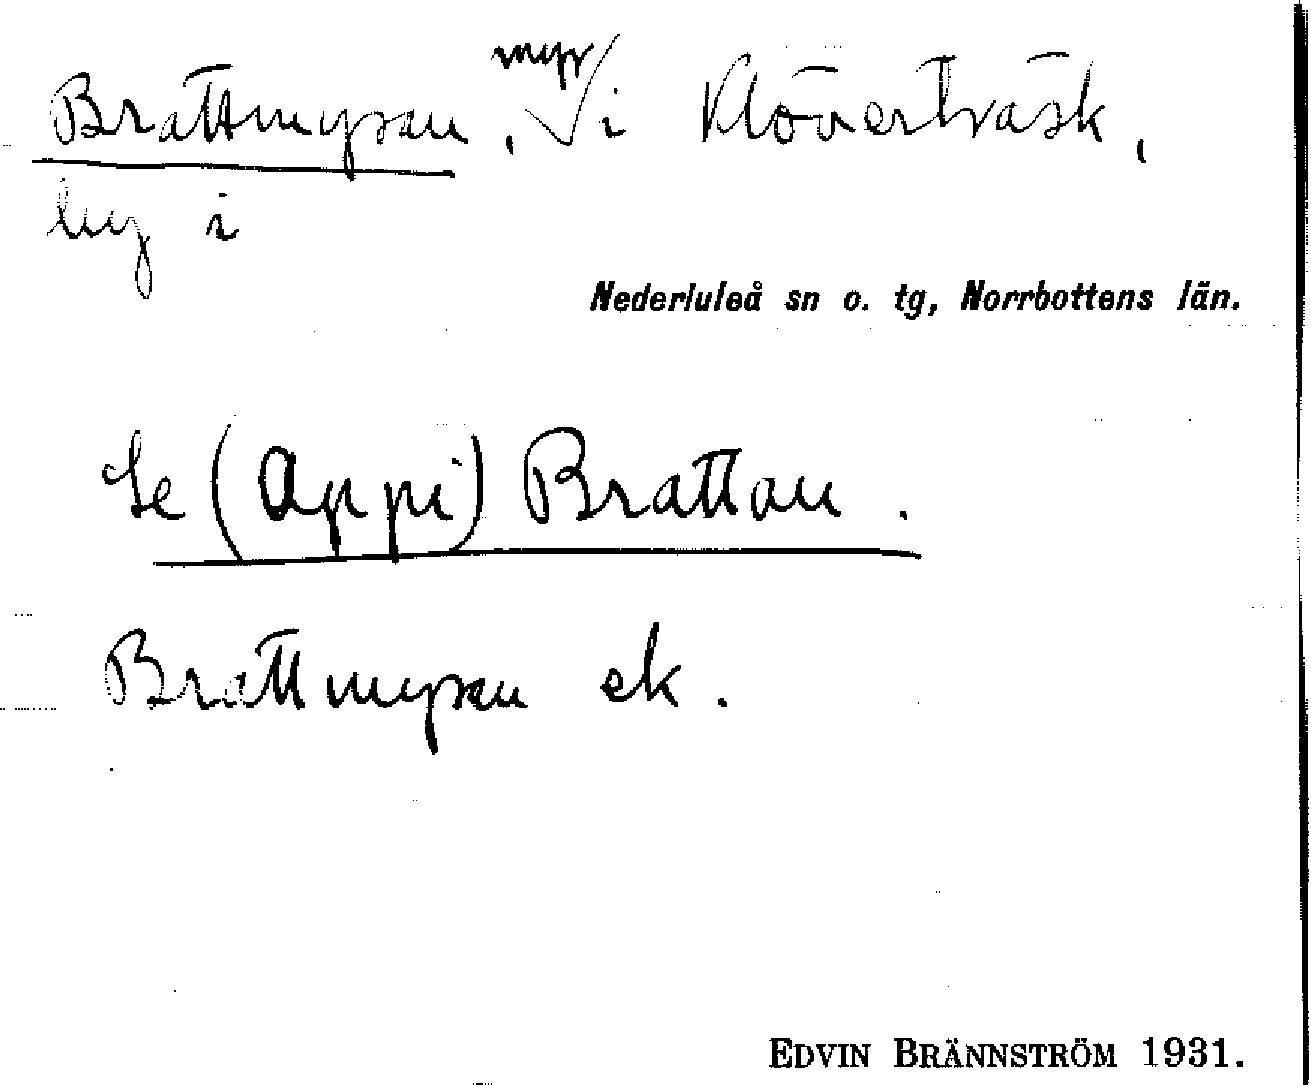 Brattmyran, myr i Klöverträsk,
by i
Nederluleå sn o. tg, Norrbottens län.
Se (Appi) Brattan.
Brattmyran ek.
EDVIN BRÄNNSTRÖM 1931.